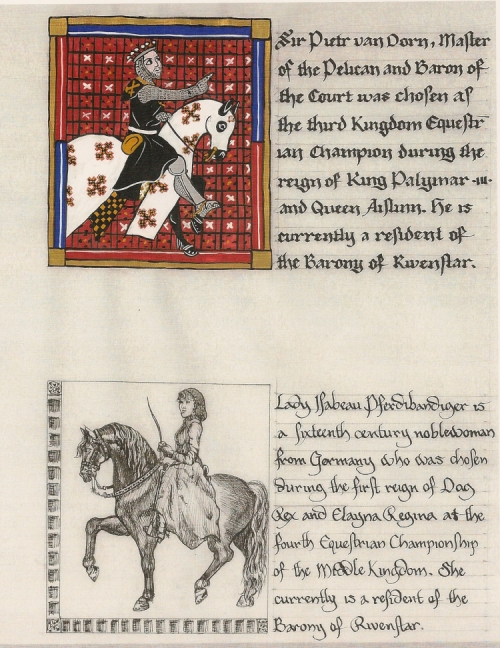 Sir Pietr van Dorn, Master
of the Pelican and Baron of
the Court was chosen as
the third Kingdom Equestr
ian Champion during the
reign of King Palymar -III-
and Queen Aislinn. He is
currently a resident of
the Barony of Rivenstar.
Lady Isabeau Pferdebandiger is
a sixteenth century noblewoman
from Germany who was chosen
during the first reign of Dag
Rex and Elayna Regina at the
fourth Equestrian Championship
of the Middle Kingdom. She
currently is a resident of the
Barony of Rivenstar.